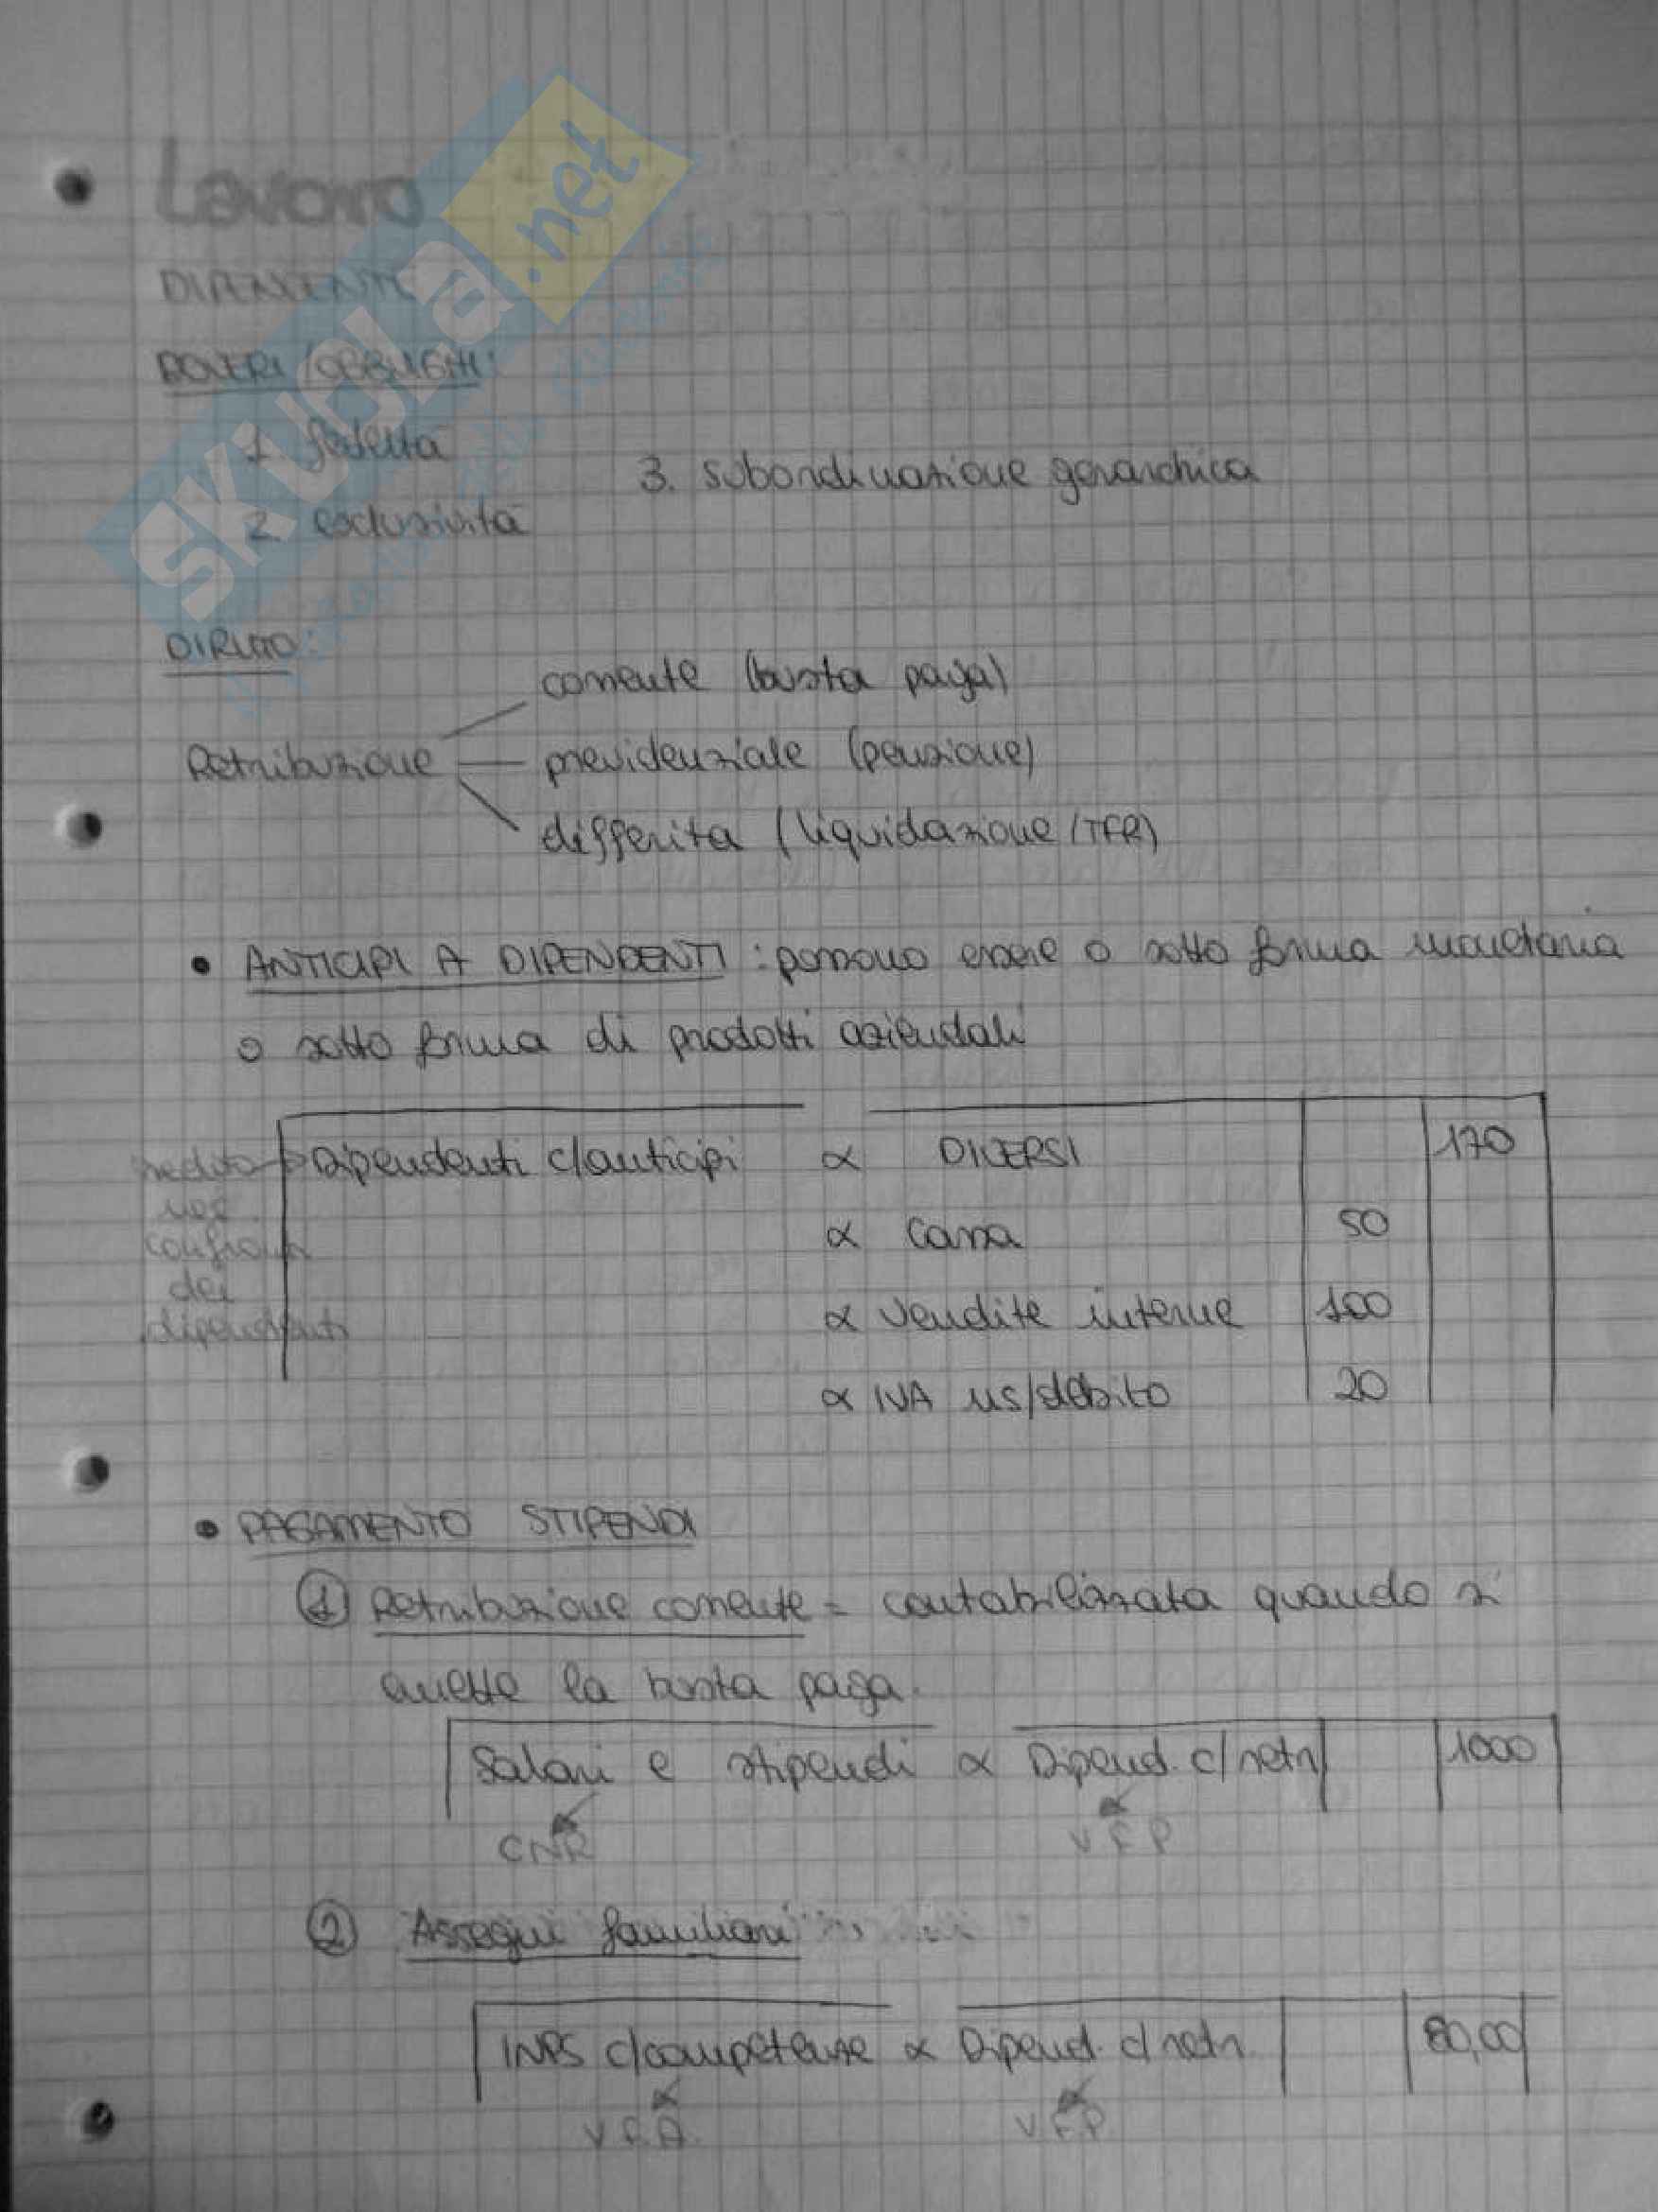 Lavoro
DIPENDENTE
DOVERI/OBBLIGHI:
1. fedeltà
2. esclusività
3. subordinazione gerarchica
DIRITTO:
Retribuzione
corrente (busta paga)
previdenziale (pensione)
differita (liquidazione/TFR)
• ANTICIPI A DIPENDENTI: possono essere o sotto forma monetaria
o sotto forma di prodotti aziendali
Dipendenti c/anticipi a DIVERSI 170
a Cassa 50
a Vendite interne 100
a IVA ns/debito 20
credito
nei
confronti
dei
dipendenti
• PAGAMENTO STIPENDI
① Retribuzione corrente = contabilizzata quando si
emette la busta paga.
Salari e stipendi a Dipend. c/retr 1000
CNR VFP
② Assegni familiari
INPS c/competenze a Dipend. c/retr. 80,00
VFA VFP
SKUOLA.net